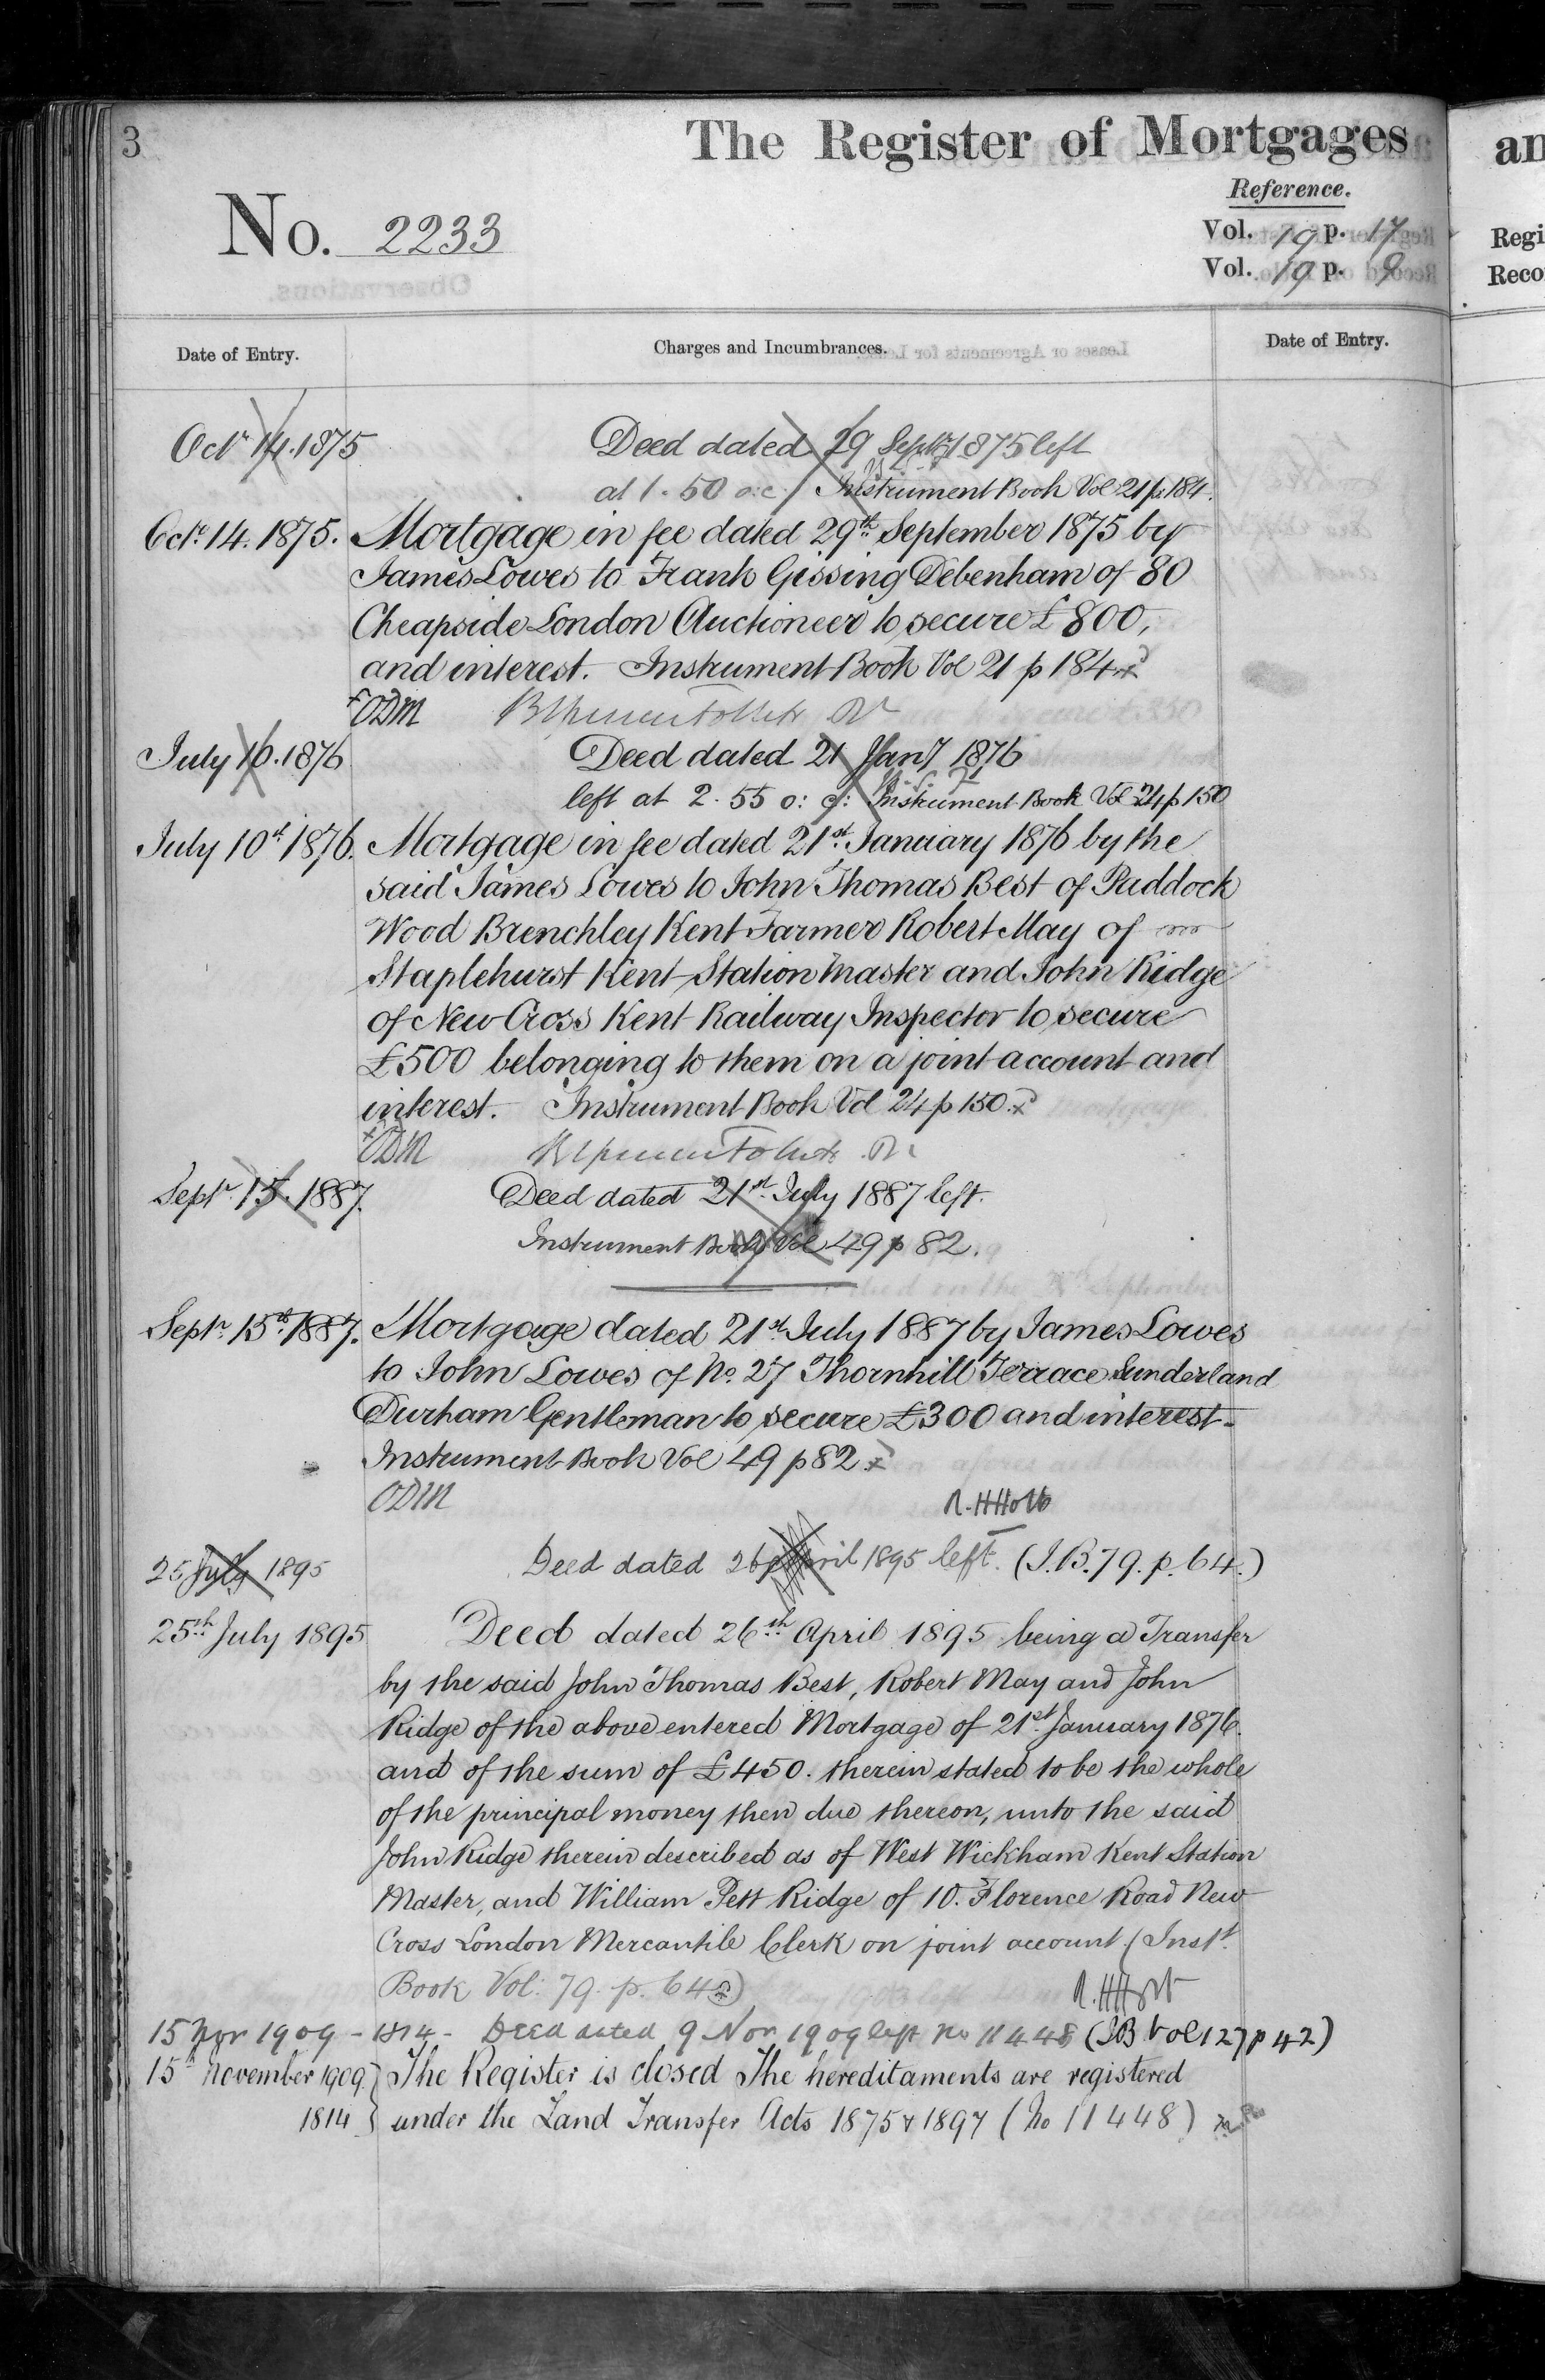 3
The Register of Mortgages
an
Reference.
No. 2233
Vol. 19 p. 17
Regi
Vol. 19 p. 9
Reco
Date of Entry.
Charges and Incumbrances.
Date of Entry.
Octr 14. 1875
Deed dated 29 Septr 1875 left
at 1.50 o:c: Instrument Book Vol 21 p 184.
Octr 14. 1875.
Mortgage in fee dated 29th September 1875 by
James Lowes to Frank Gissing Debenham of 80
Cheapside London Auctioneer to secure £800,
and interest. Instrument Book Vol 21 p 184 x
x ODM
July 10. 1876
Deed dated 21 Jany 1876
left at 2.55 o: c: Instrument Book Vol 24 p 150
July 10th 1876.
Mortgage in fee dated 21st January 1876 by the
said James Lowes to John Thomas Best of Paddock
Wood Brenchley Kent Farmer Robert May of
Staplehurst Kent Station Master and John Ridge
of New Cross Kent Railway Inspector to secure
£500 belonging to them on a joint account and
interest. Instrument Book Vol 24 p 150. x
x ODM
Septr 15. 1887.
Deed dated 21st July 1887 left.
Instrument Book Vol 49 p 82.
Septr 15th 1887.
Mortgage dated 21st July 1887 by James Lowes
to John Lowes of No. 27 Thornhill Terrace Sunderland
Durham Gentleman to secure £300 and interest.
Instrument Book Vol 49 p 82 x
ODM
R. H Holt
25 July 1895
Deed dated 26 April 1895 left. (I.B. 79. p. 64.)
25th July 1895
Deed dated 26th April 1895 being a Transfer
by the said John Thomas Best, Robert May and John
Ridge of the above entered Mortgage of 21st January 1876.
and of the sum of £450. therein stated to be the whole
of the principal money then due thereon, unto the said
John Ridge therein described as of West Wickham Kent Station
Master, and William Pett Ridge of 10. Florence Road New
Cross London Mercantile Clerk on joint account (Instt.
Book Vol: 79. p. 64 x)
R. H Holt
15 Novr 1909 - 1814 - Deed dated 9 Nov 1909 left No 11448 (IB Vol 127 p 42)
15th November 1909.
The Register is closed The hereditaments are registered
1814
under the Land Transfer Acts 1875 & 1897 (No 11448)